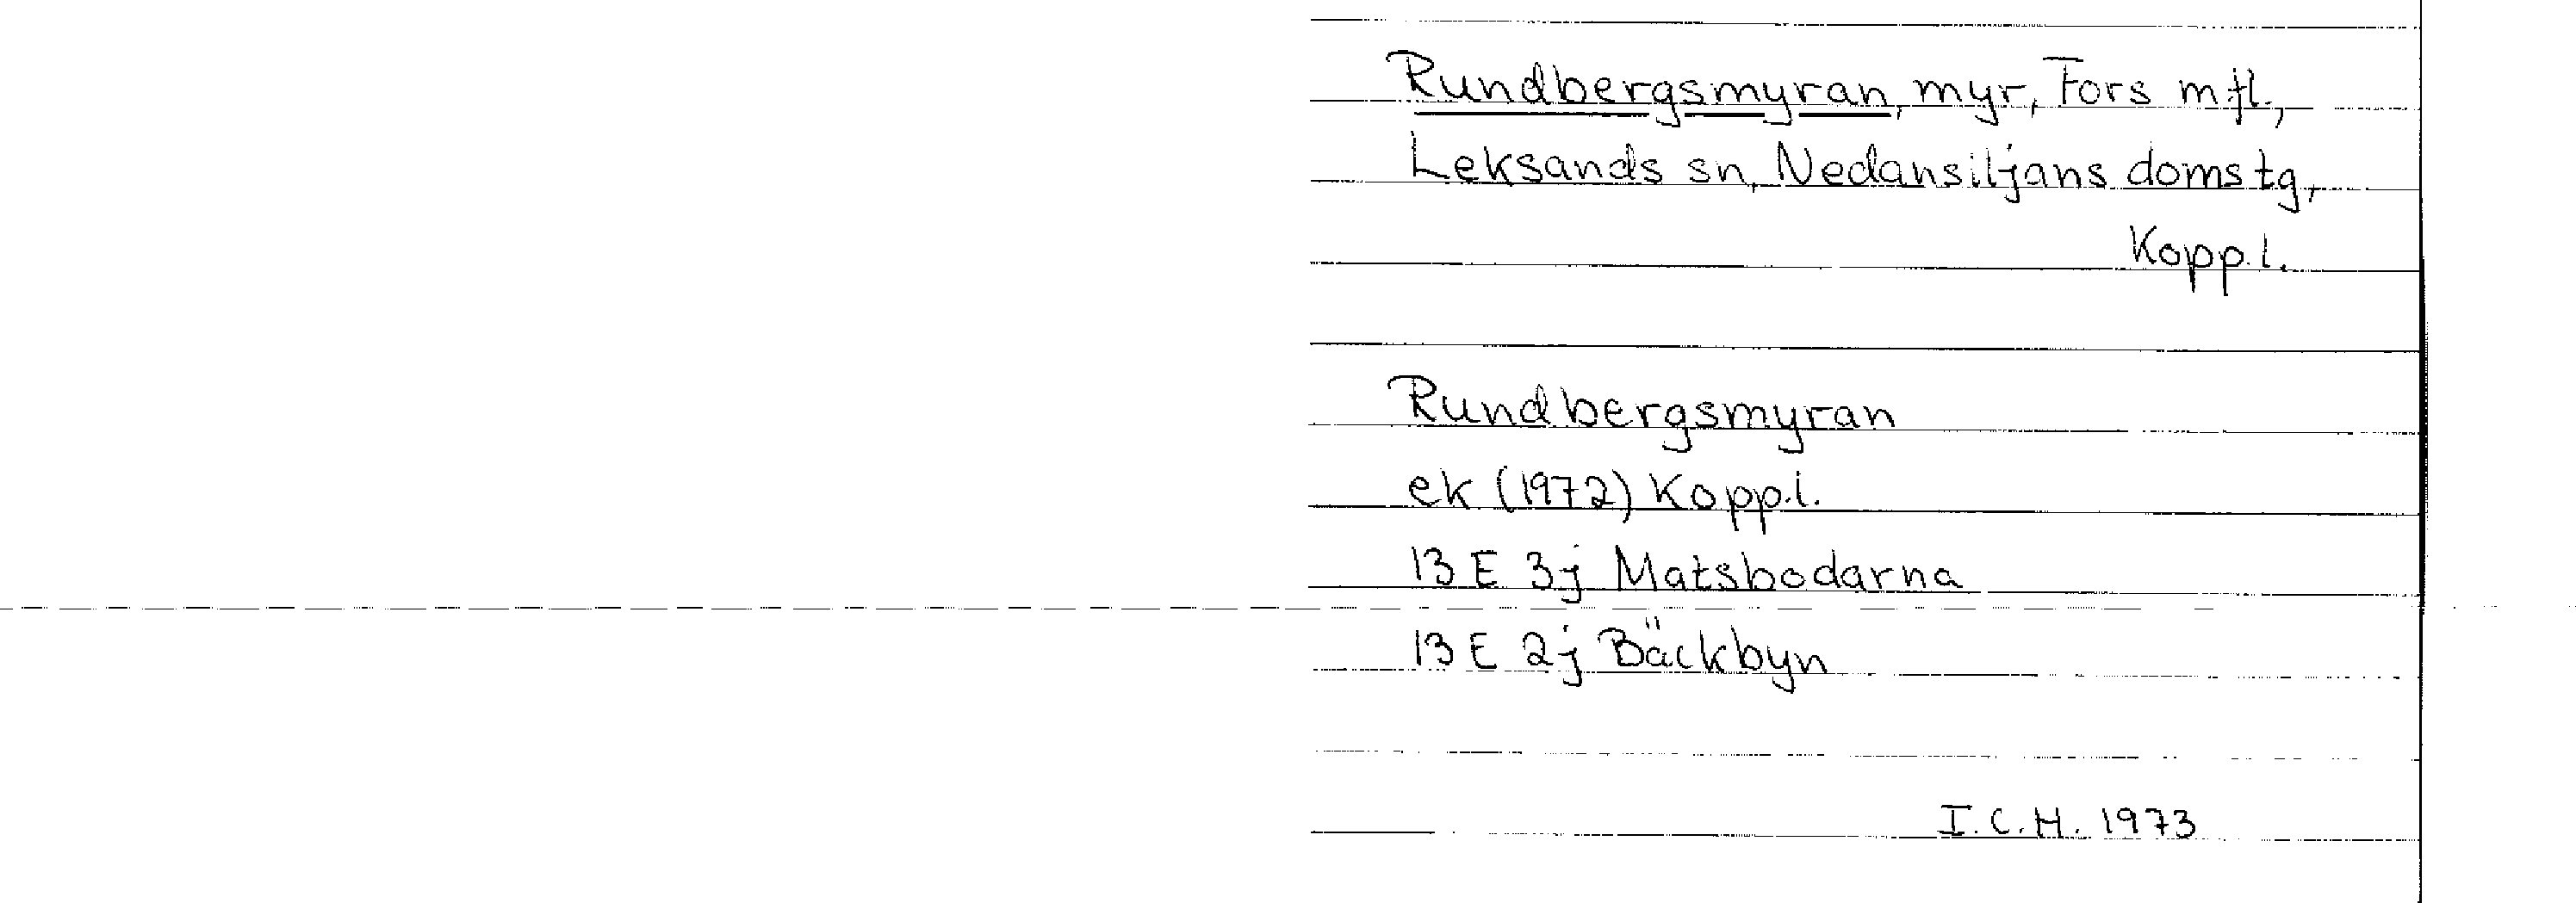 Rundbergsmyran, myr, Fors m.fl.,
Leksands sn, Nedansiljans domstg,
Kopp.l.
Rundbergsmyran
ek (1972) Kopp.l.
13 E 3j Matsbodarna
13 E 2j Bäckbyn
I.C.H. 1973